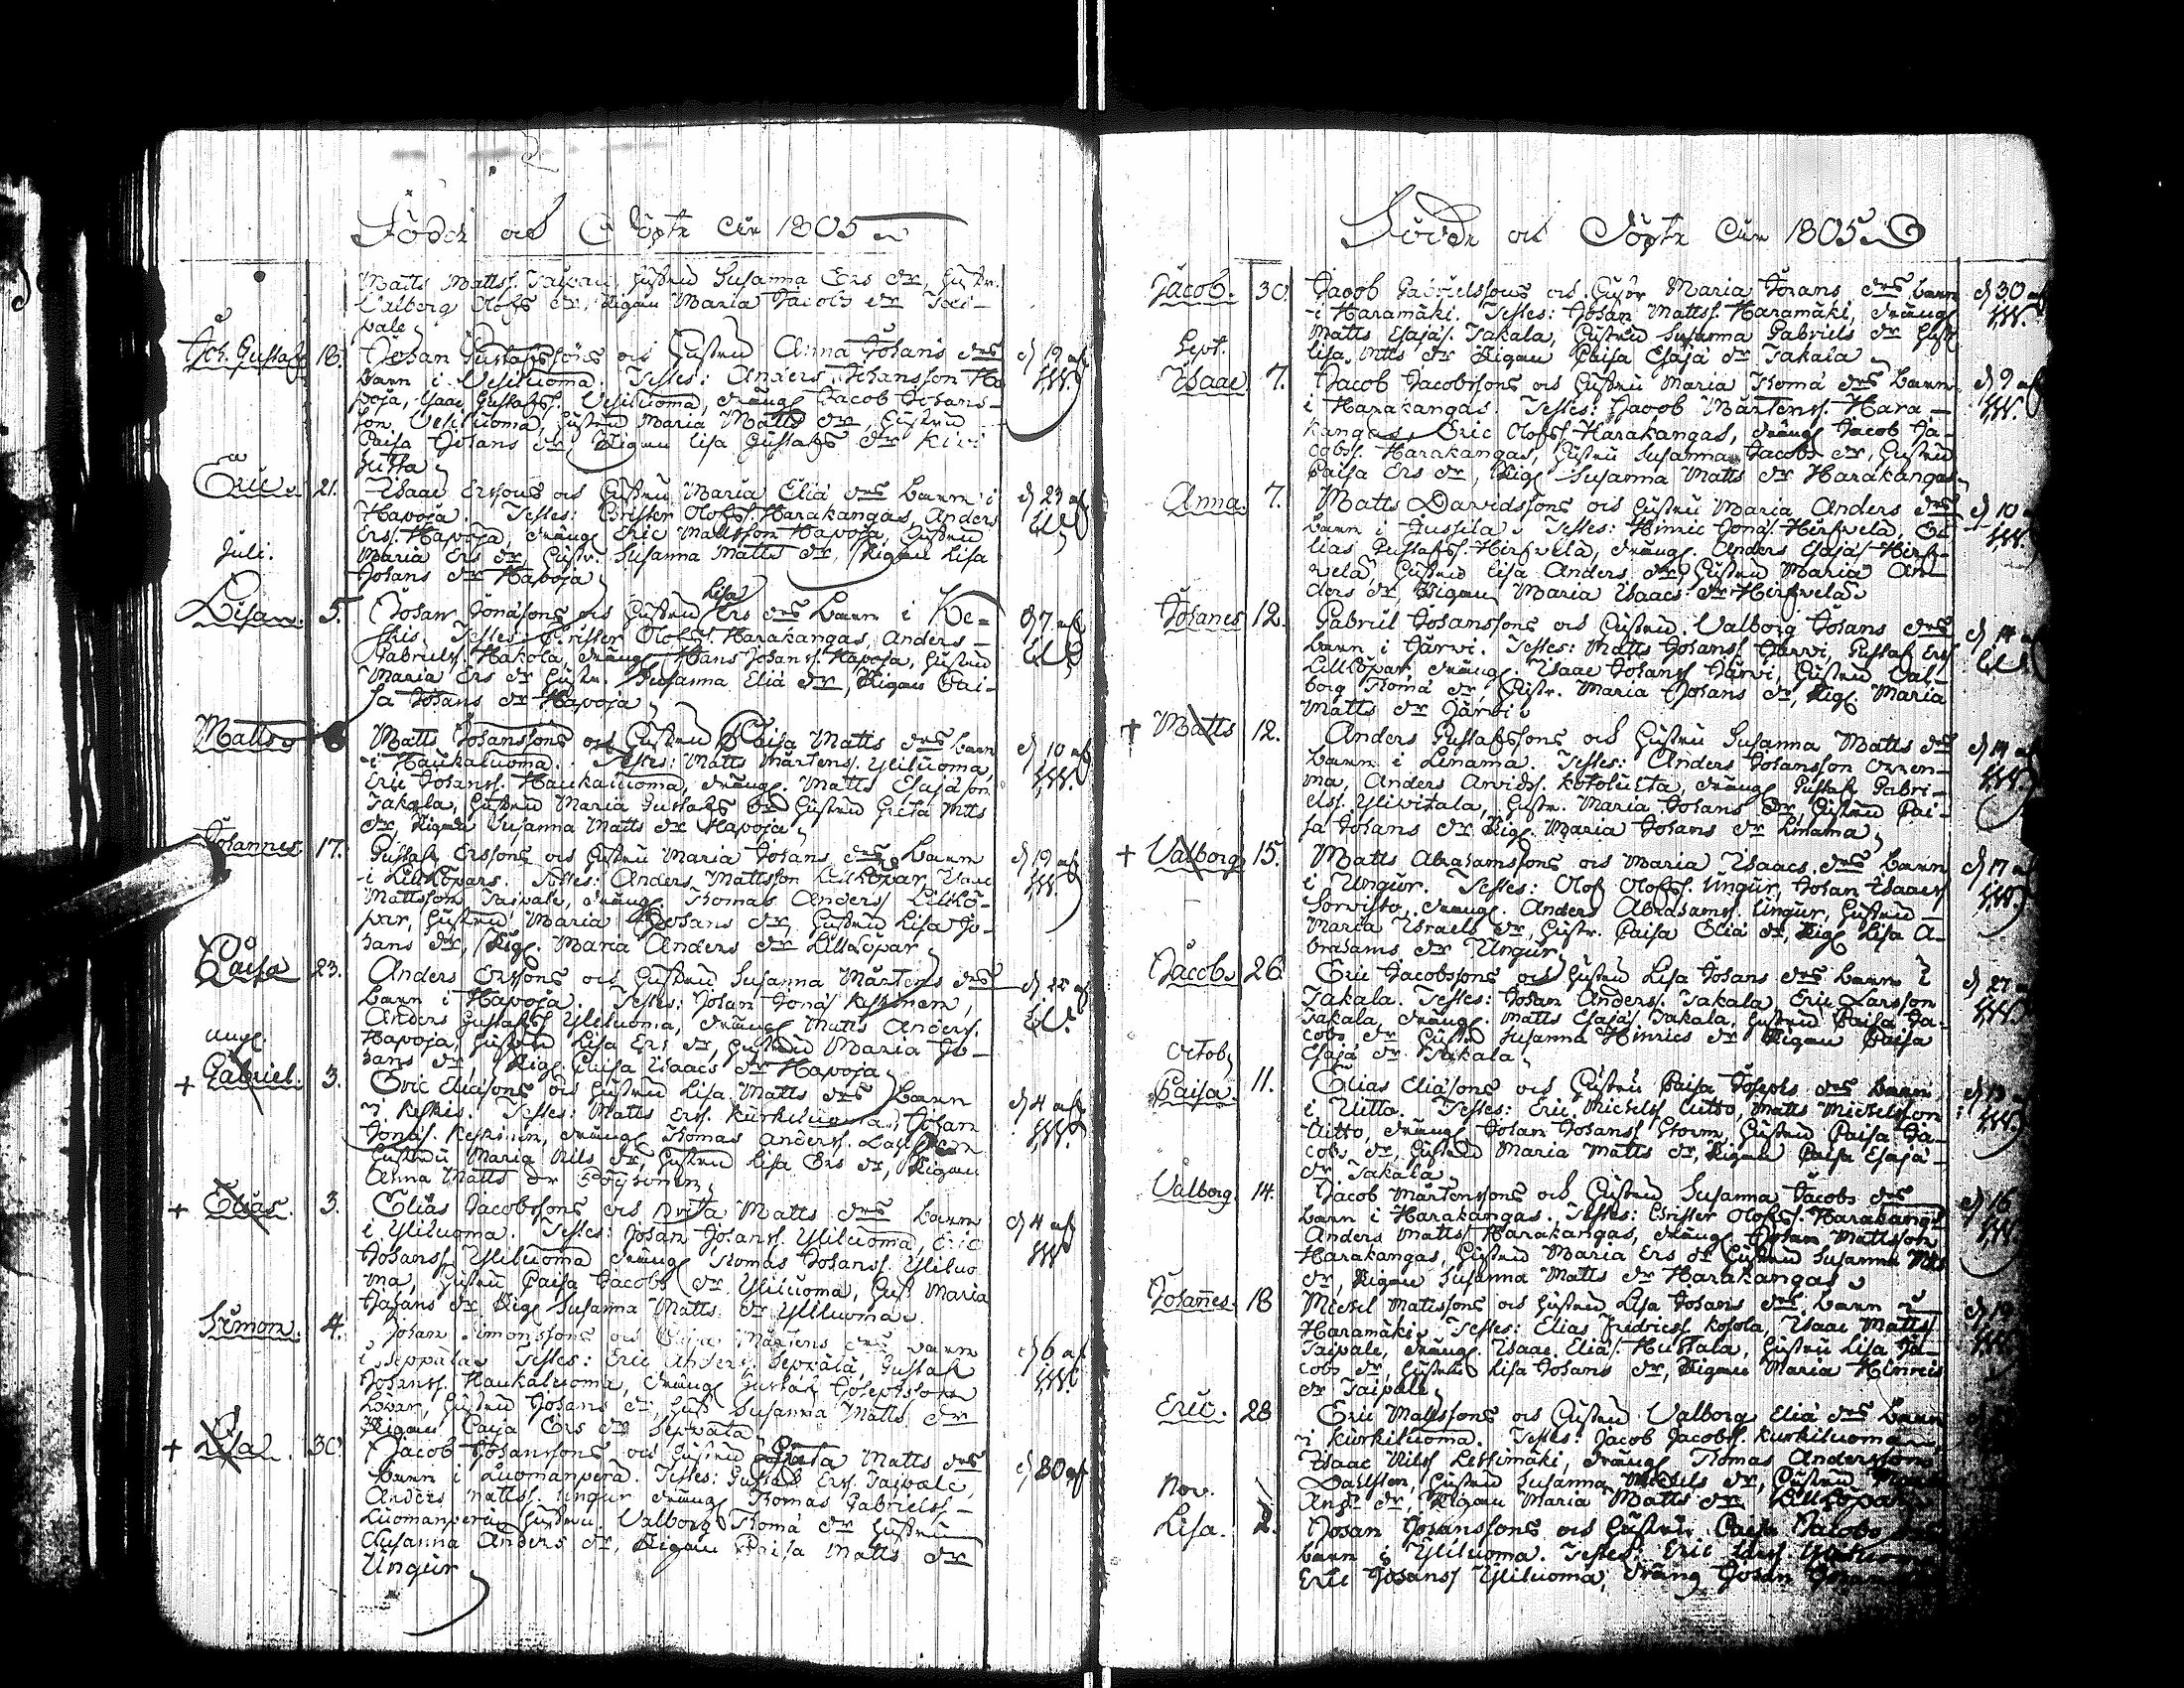 Födde och Döpte År 1805
Matts Mattss. Taipale, Hustrud Susanna Ers dr, Hustr.
Valborg Olofs dr, Pigan Maria Jacobs dr Tai-
pale
Joh. Gustaf 18. Johan Gustafssons och Hustrus Anna Johans drs d 19 af
barn i Ylituoma. Testes: Anders Johansson Ha
poja, Isaac Gustafss. Ylituoma, dräng Jacob Johans-
son Ylituoma, Hustrun Maria Matts dr, Hustrun
Caisa Johans dr, Pigan Lisa Gustafs dr Kivi
Eric 21. Isaac Erssons och Hustrus Maria Eliæ drs barn i d 23 af
Hapoja. Testes: Christer Olofss. Harakangas, Anders
Erss. Hapoja, dräng Eric Mattsson Hapoja, Hustrun
Juli. Maria Ers dr, Hustr. Susanna Matts dr, Pigan Lisa
Johans dr Hapoja
Lisa
Lisa 5. Johan Jonæsons och Hustrus Ers drs barn i Ke= d 7 af
skis. Testes: Christer Olofss. Harakangas, Anders
Gabrielss. Hakola, dräng Hans Johanss. Hapoja, Hustrun
Maria Ers dr Hustr. Susanna Eliæ dr, Pigan Cai-
sa Johans dr Hapoja
Matts 6 Matts Johanssons och Hustrus Caisa Matts drs barn d 10 af
i Haukaluoma. Testes: Matts Mårtenss. Ylituoma,
Eric Johanss. Haukaluoma, dräng Matts Esajæson
Takala, Hustrun Maria Gustafs dr Hustrun Greta Mtts
dr, Pigan Susanna Matts dr Hapoja
Johannes 17. Gustaf Erssons och Hustrus Maria Johans drs barn d 19 af
i Lillköpars. Testes: Anders Mattsson Lillköpar, Isaac
Mattsson Taipale, dräng Thomas Anderss. Lillkö-
par, Hustrun Maria Johans dr, Hustrun Lisa Jo-
hans dr, Pig. Maria Anders dr Lillköpar
Caisa 23. Anders Erssons och Hustrus Susanna Mårtens drs d 25 af
barn i Hapoja. Testes: Johan Jonæs. Keskinen,
Anders Gustafss. Ylituoma, dräng Matts Anderss.
Hapoja, Hustrun Lisa Ers dr, Hustrun Maria Jo-
Aug. hans dr, Pig. Caisa Isaacs dr Hapoja
+ Gabriel 3. Eric Eliæsons och Hustrus Lisa Matts drs barn d 4 af
i Keskis. Testes: Matts Erss. Kurkiluoma, Johan
Jonæs. Keskinen, dräng Thomas Anderss.
Hustrun Maria Nils dr, Hustrun Lisa Ers dr, Pigan
Anna Matts dr
+ Elias 3. Elias Jacobssons och Brita Matts drs barn d 4 af
i Ylituoma. Testes: Johan Johanss. Ylituoma, Eric
Johanss. Ylituoma dräng Thomas Johanss. Ylituo
ma, Hustrun Caisa Jacobs dr Ylituoma, Hust. Maria
Johans dr Pig. Susanna Matts dr Ylituoma
Simon 4. Johan Simonssons och Mårtens drs barn d 6 af
i Seppälä. Testes: Eric Anderss. Seppälä, Gustaf
Johanss. Haukaluoma, dräng Gustaf Josephsson
Hustrun Johans dr, Hust. Susanna Matts dr
Pigan Caisa Ers dr Seppälä
+ Lisa 30. Jacob Johanssons och Hustrus Greta Matts drs d 30 af
barn i Luomanperä. Testes: Gustaf Erss. Taipale,
Anders Mattss. Ungur dräng Thomas Gabrielss.
Luomanperä, Hustrun Valborg Thomæ dr Hustrun
Susanna Anders dr, Pigan Caisa Matts dr
Ungur
Födde och Döpte År 1805
Jacob. 30. Jacob Gabrielssons och Hustr Maria Johans drs barn d 30 af
i Haramäki. Testes: Johan Mattss. Haramäki, dräng
Matts Esajæs. Takala, Hustrun Susanna Gabriels dr Hust
Sept. Lisa Mtts dr Pigan Caisa Esajæ dr Takala
Isaac 7. Jacob Jacobssons och Hustrus Maria Thomæ drs barn d 9 af
i Harakangas. Testes: Jacob Mårtenss. Hara-
kangas, Eric Olofss. Harakangas, dräng Jacob Ja-
cobss. Harakangas, Hustrun Susanna Jacobs dr, Hustrun
Caisa Ers dr, Pig. Susanna Matts dr Harakangas
Anna 7. Matts Davidssons och Hustrus Maria Anders drs d 10 af
barn i Jussila. Testes: Hinric Jonæs. Hirsvelä, E-
lias Gustafss. Hirsvelä, dräng Anders Esajæs. Hirs-
velä, Hustrun Lisa Anders dr, Hustrun Maria An-
ders dr, Pigan Maria Isaacs dr Hirsvelä
Johanes 12. Gabriel Johanssons och Hustrus Valborg Johans drs d 14 af
barn i Järvi. Testes: Matts Johanss. Järvi, Gustaf Erss
Lillköpar, dräng Isaac Johanss. Järvi, Hustrun Val-
borg Thomæ dr, Hustr. Maria Johans dr, Pig. Maria
Matts dr Järvi
+ Matts 12. Anders Gustafssons och Hustrus Susanna Matts drs d 14 af
barn i Linama. Testes: Anders Johansson
ma, Anders Arvidss. dräng Gustaf Gabri-
elss. Ylivitala, Hustr. Maria Johans dr Hustrun Cai-
sa Johans dr Pig. Maria Johans dr Linama
+ Valborg 15. Matts Abrahamssons och Maria Isaacs drs barn d 17 af
i Ungur. Testes: Olof Olofss. Ungur, Johan Isaacss
Sorvisto, dräng Anders Abrahamss. Ungur, Hustrun
Maria Israels dr, Hustr. Caisa Eliæ dr, Pig. Lisa A-
brahams dr Ungur
Jacob 26. Eric Jacobssons och Hustrus Lisa Johans drs barn i d 27 af
Takala. Testes: Johan Anderss. Takala, Eric Larsson
Takala, dräng Matts Esajæs. Takala, Hustrun Caisa Ja-
cobs dr Hustru Susanna Hinrics dr Pigan Caisa
Octob. Esajæ dr Takala
Caisa 11. Elias Eliæsons och Hustrus Caisa Josephs drs barn d 13 af
i Uitto. Testes: Eric Michelss Uitto, Matts Michelsson
Uitto, dräng Johan Johanss. Storm, Hustrun Caisa Ja-
cobs dr, Hustrun Maria Matts dr, Pigan Caisa Esajæ
dr Takala
Valborg 14. Jacob Mårtenssons och Hustrus Susanna Jacobs drs d 16
barn i Harakangas. Testes: Christer Olofss. Harakangas
Anders Mattss Harakangas, dräng Johan Mattsson
Harakangas, Hustrun Maria Ers dr Hustrun Susanna Mtts
dr, Pigan Susanna Matts dr Harakangas
Johañes 18 Michel Matssons och Hustrus Lisa Johans drs barn i d 19
Haramäki. Testes: Elias Fredricss. Kosola, Isaac Matts
Taipale, dräng Isaac Eliæs. Hustrun Lisa Ja-
cobs dr, Hustrun Lisa Johans dr, Pigan Maria Hinrics
dr Taipale
Eric. 28 Eric Matssons och Hustrus Valborg Eliæ drs barn
i Kurkiluoma. Testes: Jacob Jacobss. Kurkiluoma,
Isaac Nilss Lehtimäki, dräng Thomas Andersson
Dahlsten, Hustrun Susanna Michels dr, Hustrun
Nov. And. dr, Pigan Maria Matts dr Lillköpar
Lisa. 2. Johan Johanssons och Hustrus Caisa Jacobs
barn i Ylituoma. Testes: Eric Larss.
Eric Johanss Ylituoma, dräng Johan